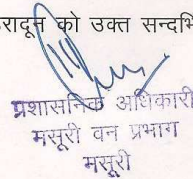 रादून को उक्त सन्दर्भि
प्रशासनिक अधिकारी
मसूरी वन प्रभाग
मसूरी